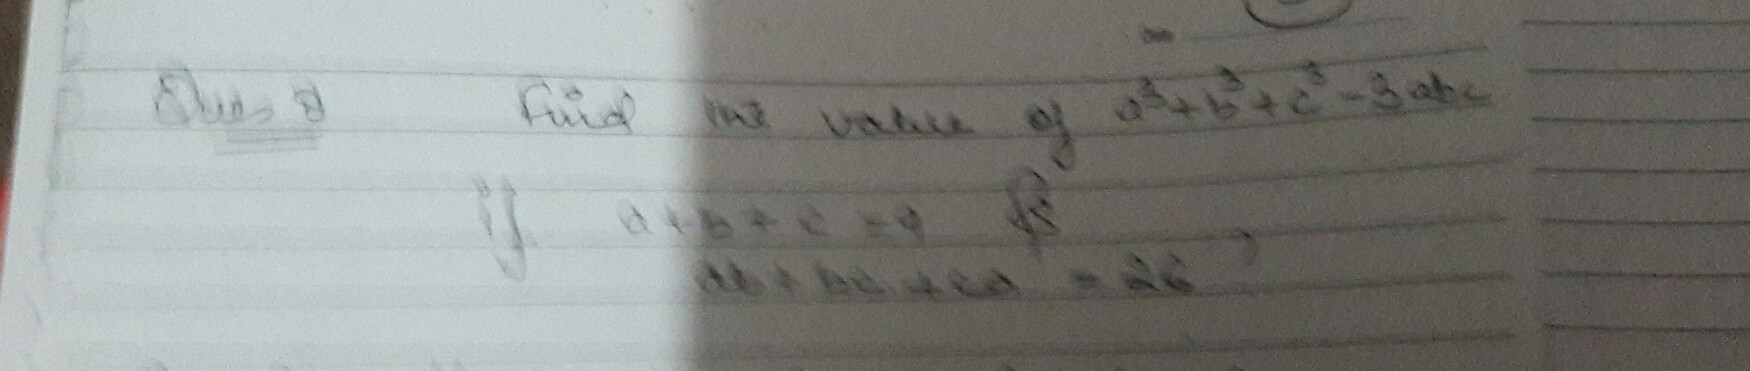 Ques 8 Find the value of a³+b³+c³-3abc
if a+b+c=9 &
ab+bc+ca = 26